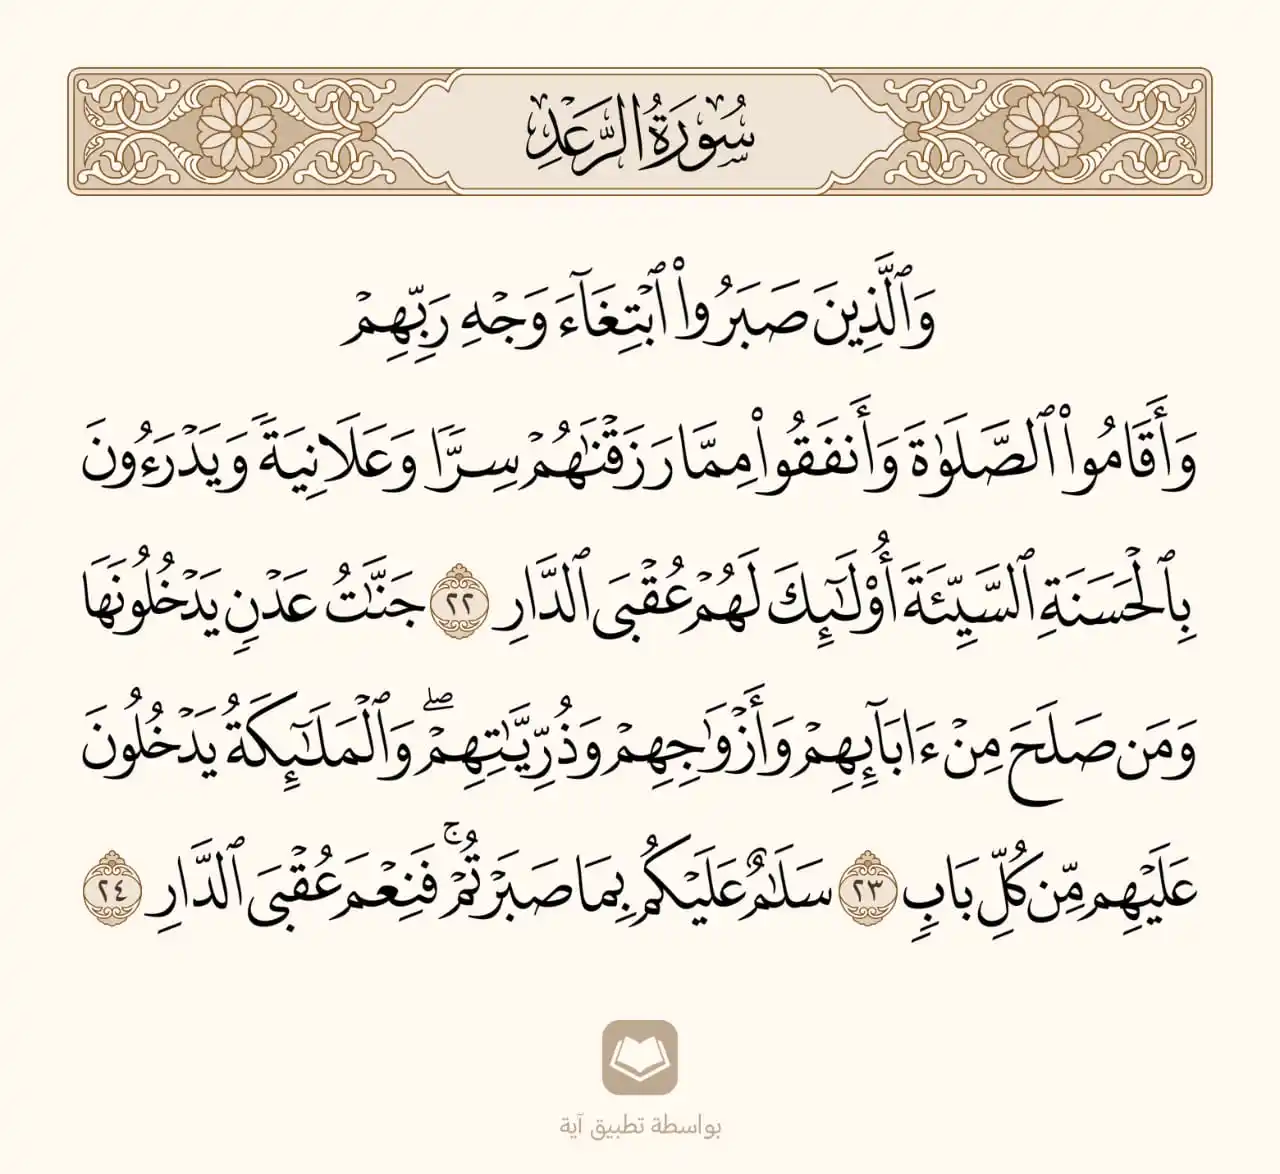 سُورَةُ الرَّعْدِ
وَٱلَّذِينَ صَبَرُوا۟ ٱبْتِغَآءَ وَجْهِ رَبِّهِمْ
وَأَقَامُوا۟ ٱلصَّلَوٰةَ وَأَنفَقُوا۟ مِمَّا رَزَقْنَـٰهُمْ سِرًّا وَعَلَانِيَةً وَيَدْرَءُونَ
بِٱلْحَسَنَةِ ٱلسَّيِّئَةَ أُو۟لَـٰٓئِكَ لَهُمْ عُقْبَى ٱلدَّارِ ٢٢ جَنَّـٰتُ عَدْنٍ يَدْخُلُونَهَا
وَمَن صَلَحَ مِنْ ءَابَآئِهِمْ وَأَزْوَٰجِهِمْ وَذُرِّيَّـٰتِهِمْ ۖ وَٱلْمَلَـٰٓئِكَةُ يَدْخُلُونَ
عَلَيْهِم مِّن كُلِّ بَابٍ ٢٣ سَلَـٰمٌ عَلَيْكُم بِمَا صَبَرْتُمْ ۚ فَنِعْمَ عُقْبَى ٱلدَّارِ ٢٤
بواسطة تطبيق آية